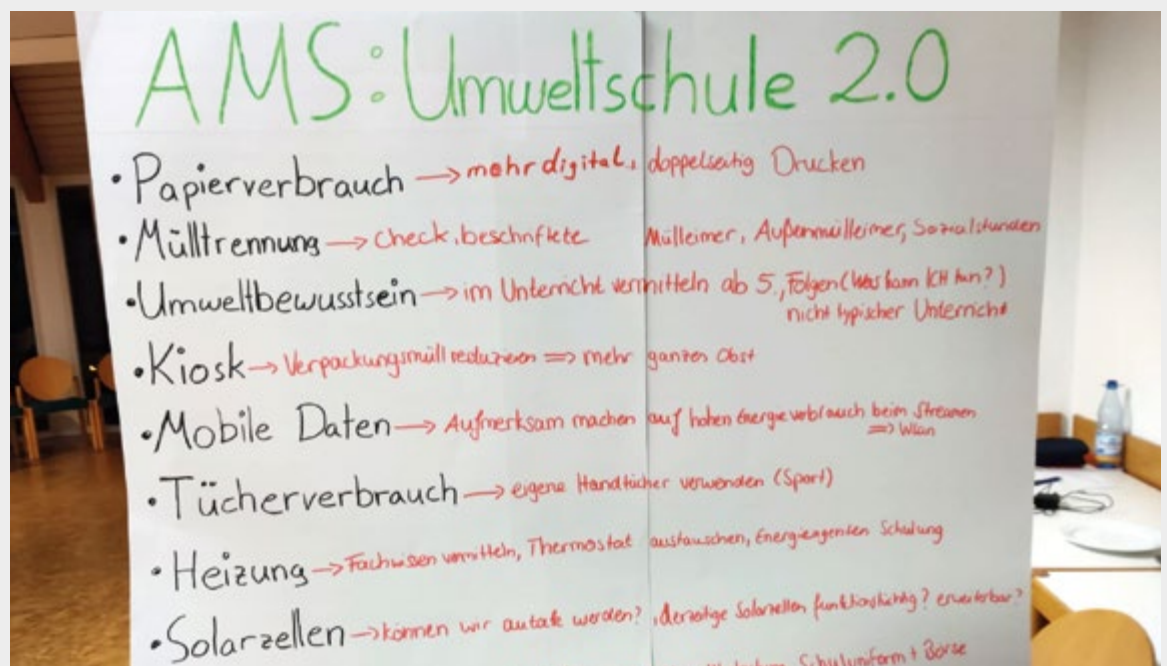 AMS: Umweltschule 2.0
• Papierverbrauch → mehr digital, doppelseitig Drucken
• Mülltrennung → Check, beschriftete Mülleimer, Außenmülleimer, Sozialstunden
• Umweltbewusstsein → im Unterricht vermitteln ab 5., Folgen (Was kann ICH tun?)
nicht typischer Unterricht
• Kiosk → Verpackungsmüll reduzieren ⇒ mehr ganzen Obst
• Mobile Daten → Aufmerksam machen auf hohen Energieverbrauch beim Streamen
⇒ Wlan
• Tücherverbrauch → eigene Handtücher verwenden (Sport)
• Heizung → Fachwissen vermitteln, Thermostat austauschen, Energieagenten Schulung
• Solarzellen → können wir autak werden?, derzeitige Solarzellen funktionstüchtig? erweiterbar?
Schuluniform + Börse